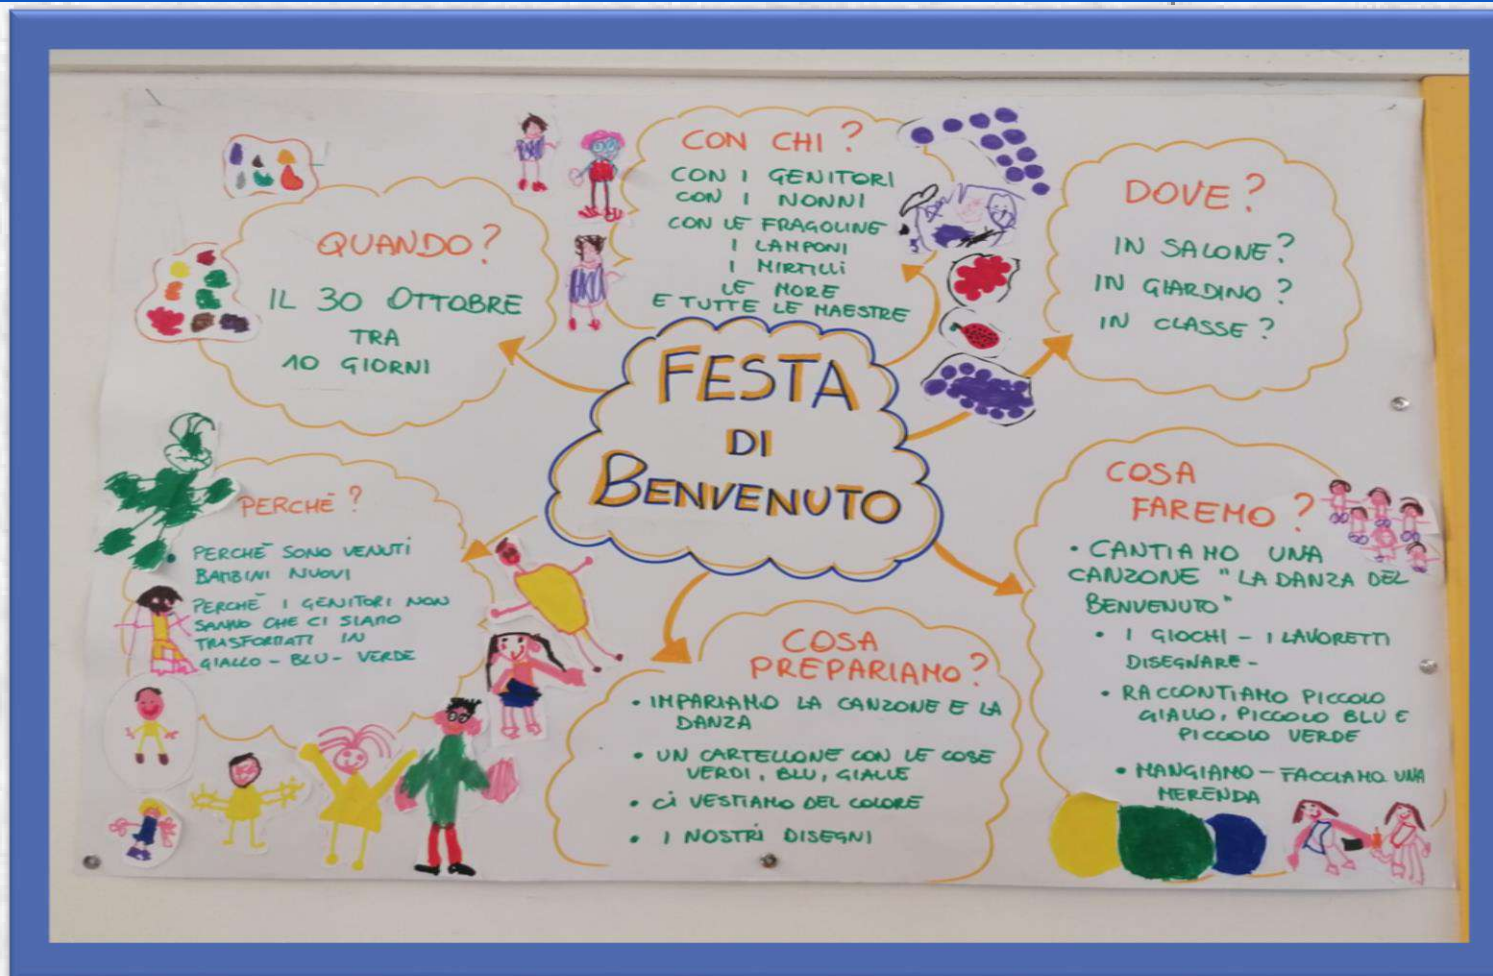 FESTA
DI
BENVENUTO
QUANDO?
IL 30 OTTOBRE
TRA
10 GIORNI
CON CHI?
CON I GENITORI
CON I NONNI
CON LE FRAGOLINE
I LAMPONI
I MIRTILLI
LE MORE
E TUTTE LE MAESTRE
DOVE?
IN SALONE?
IN GIARDINO?
IN CLASSE?
PERCHÈ?
• PERCHÈ SONO VENUTI
BAMBINI NUOVI
PERCHÈ I GENITORI NON
SANNO CHE CI SIAMO
TRASFORMATI IN
GIALLO - BLU - VERDE
COSA
PREPARIAMO?
• IMPARIAMO LA CANZONE E LA
DANZA
• UN CARTELLONE CON LE COSE
VERDI, BLU, GIALLE
• CI VESTIAMO DEL COLORE
• I NOSTRI DISEGNI
COSA
FAREMO?
• CANTIAMO UNA
CANZONE "LA DANZA DEL
BENVENUTO"
• I GIOCHI - I LAVORETTI
DISEGNARE -
• RACCONTIAMO PICCOLO
GIALLO, PICCOLO BLU E
PICCOLO VERDE
• MANGIAMO - FACCIAMO UNA
MERENDA